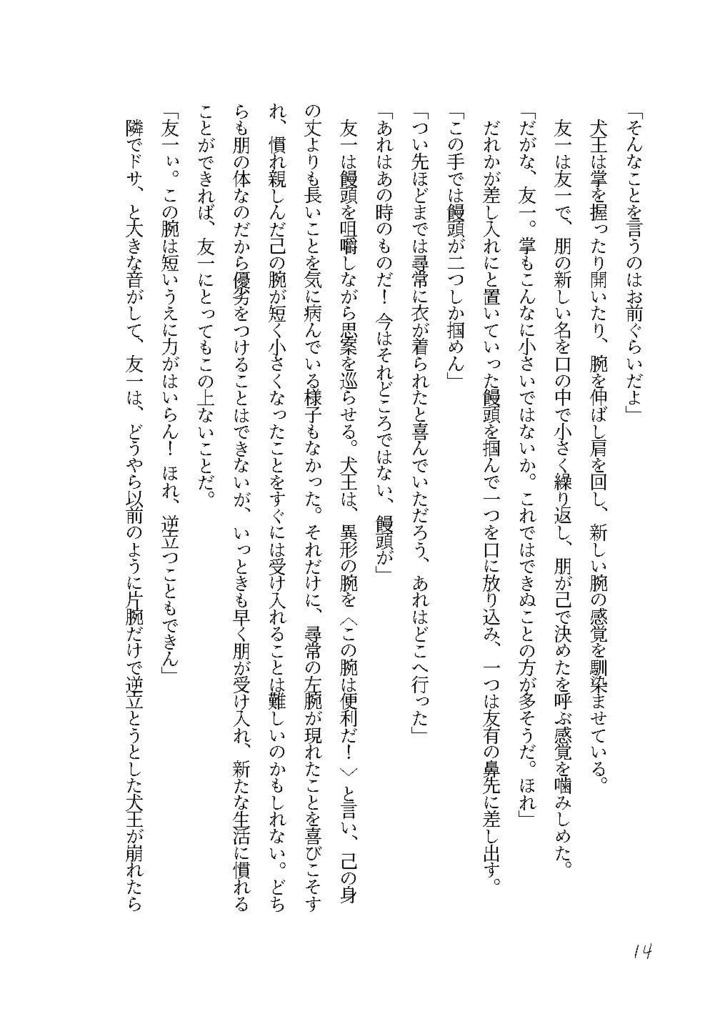 「そんなことを言うのはお前ぐらいだよ」
犬王は掌を握ったり開いたり、腕を伸ばし肩を回し、新しい腕の感覚を馴染ませている。
友一は友一で、朋の新しい名を口の中で小さく繰り返し、朋が己で決めたを呼ぶ感覚を噛みしめた。
「だがな、友一。掌もこんなに小さいではないか。これではできぬことの方が多そうだ。ほれ」
だれかが差し入れにと置いていった饅頭を掴んで一つを口に放り込み、一つは友有の鼻先に差し出す。
「この手では饅頭が二つしか掴めん」
「つい先ほどまでは尋常に衣が着られたと喜んでいただろう、あれはどこへ行った」
「あれはあの時のものだ！ 今はそれどころではない、饅頭が」
友一は饅頭を咀嚼しながら思案を巡らせる。犬王は、異形の腕を〈この腕は便利だ！〉と言い、己の身
の丈よりも長いことを気に病んでいる様子もなかった。それだけに、尋常の左腕が現れたことを喜びこそす
れ、慣れ親しんだ己の腕が短く小さくなったことをすぐには受け入れることは難しいのかもしれない。どち
らも朋の体なのだから優劣をつけることはできないが、いっときも早く朋が受け入れ、新たな生活に慣れる
ことができれば、友一にとってもこの上ないことだ。
「友一ぃ。この腕は短いうえに力がはいらん！ ほれ、逆立つこともできん」
隣でドサ、と大きな音がして、友一は、どうやら以前のように片腕だけで逆立とうとした犬王が崩れたら
14